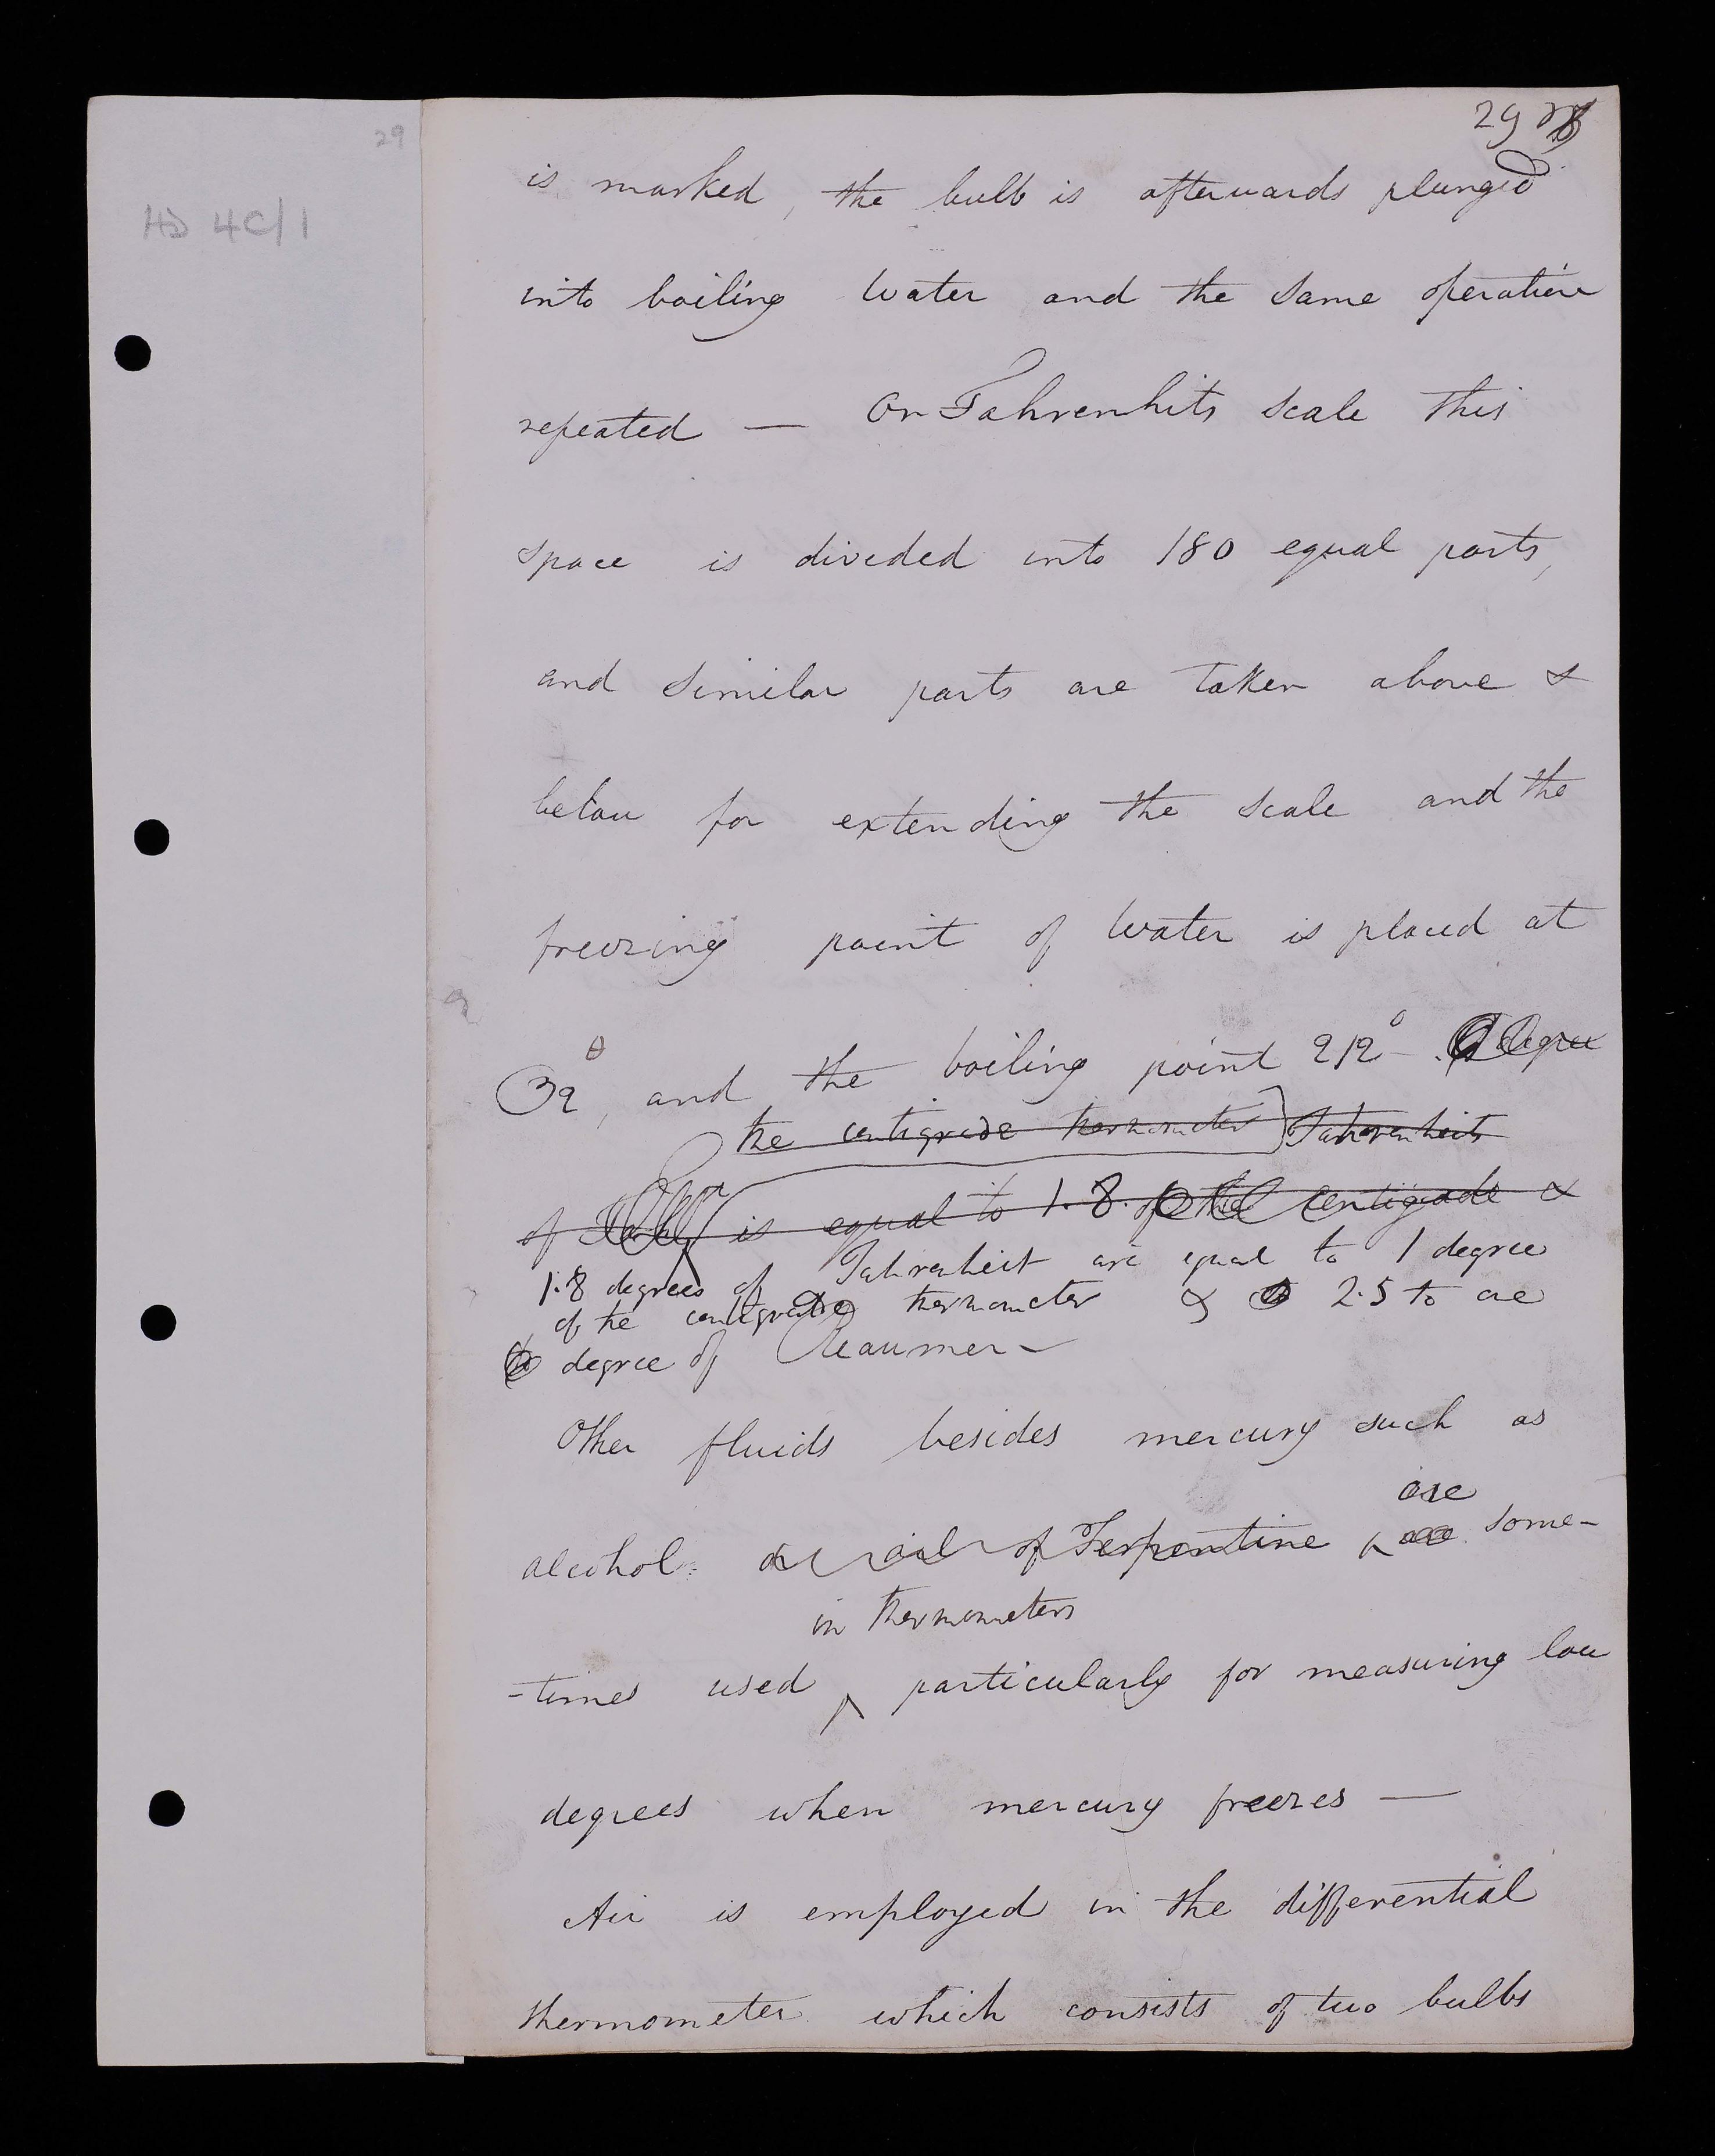 29
29
HD 4C/1
is marked, the bulb is afterwards plunged
into boiling water and the same operation
repeated — On Fahrenhits scale this
space is divided into 180 equal parts,
and similar parts are taken above &
below for extending the scale and the
freezing point of water is placed at
32°, and the boiling point 212° - degree
the centigrade thermometer Fahrenheits
of is equal to 1.8. of the Centigrade &
1.8 degrees of Fahrenheit are equal to 1 degree
of the centigrade thermometer & 2.5 to one
degree of Reaumer -
Other fluids besides mercury such as
are
alcohol or oil of Terpentine some-
in thermometers
-times used particularly for measuring low
degrees when mercury freezes —
Air is employed in the differential
thermometer which consists of two bulbs